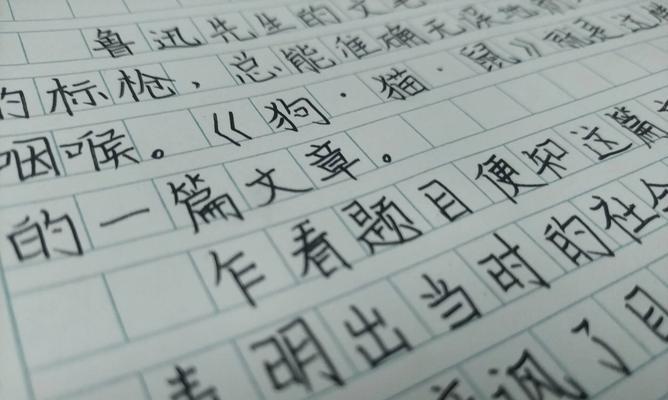 鲁迅先生的文笔
的标枪，总能准确无误地
咽喉。《狗·猫·鼠》就是这
的一篇文章。
乍看题目便知这篇
表明出当时的社会
讽了